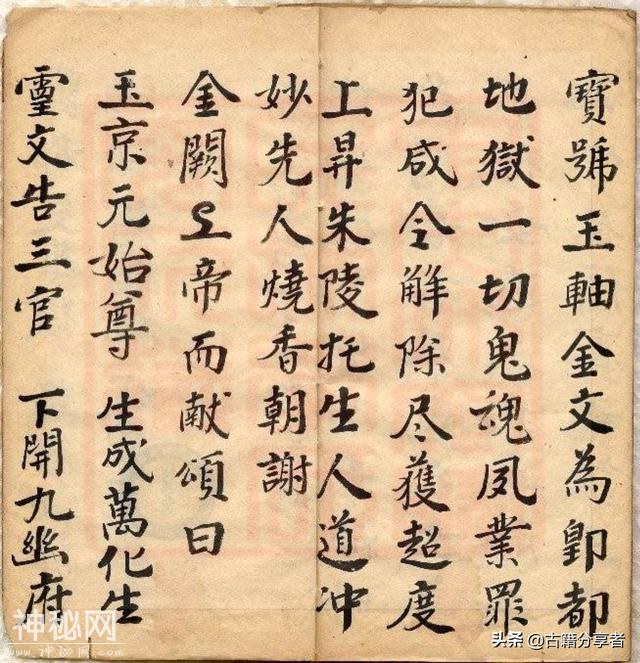 寶號玉軸金文為都
地獄一切鬼魂夙業罪
犯咸令觧除尽獲超度
上昇朱陵托生人道冲
妙先人燒香朝謝
金闕上帝而献頌曰
玉京元始尊 生成萬化生
霊文告三官 下開九幽府
神秘网
头条 @古籍分享者